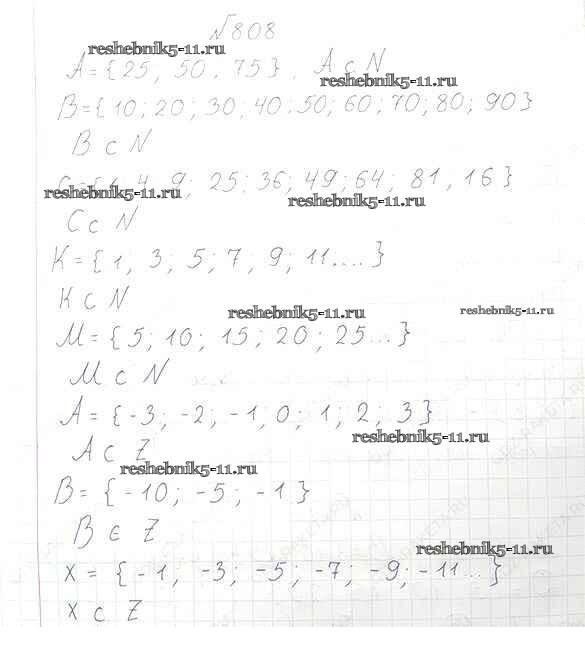 №808
reshebnik5-11.ru
A = {25, 50, 75}, A ⊂ N
reshebnik5-11.ru
B = {10; 20; 30; 40; 50; 60; 70; 80; 90}
B ⊂ N
4, 9; 25; 36; 49; 64; 81, 16}
reshebnik5-11.ru
reshebnik5-11.ru
C ⊂ N
K = {1, 3; 5; 7, 9; 11....}
K ⊂ N
reshebnik5-11.ru
reshebnik5-11.ru
M = {5; 10; 15; 20; 25...}
M ⊂ N
A = {-3; -2; -1, 0; 1; 2; 3}
reshebnik5-11.ru
A ⊂ Z
reshebnik5-11.ru
B = {-10; -5; -1}
B ∈ Z
reshebnik5-11.ru
X = {-1, -3; -5; -7; -9; -11...}
X ⊂ Z